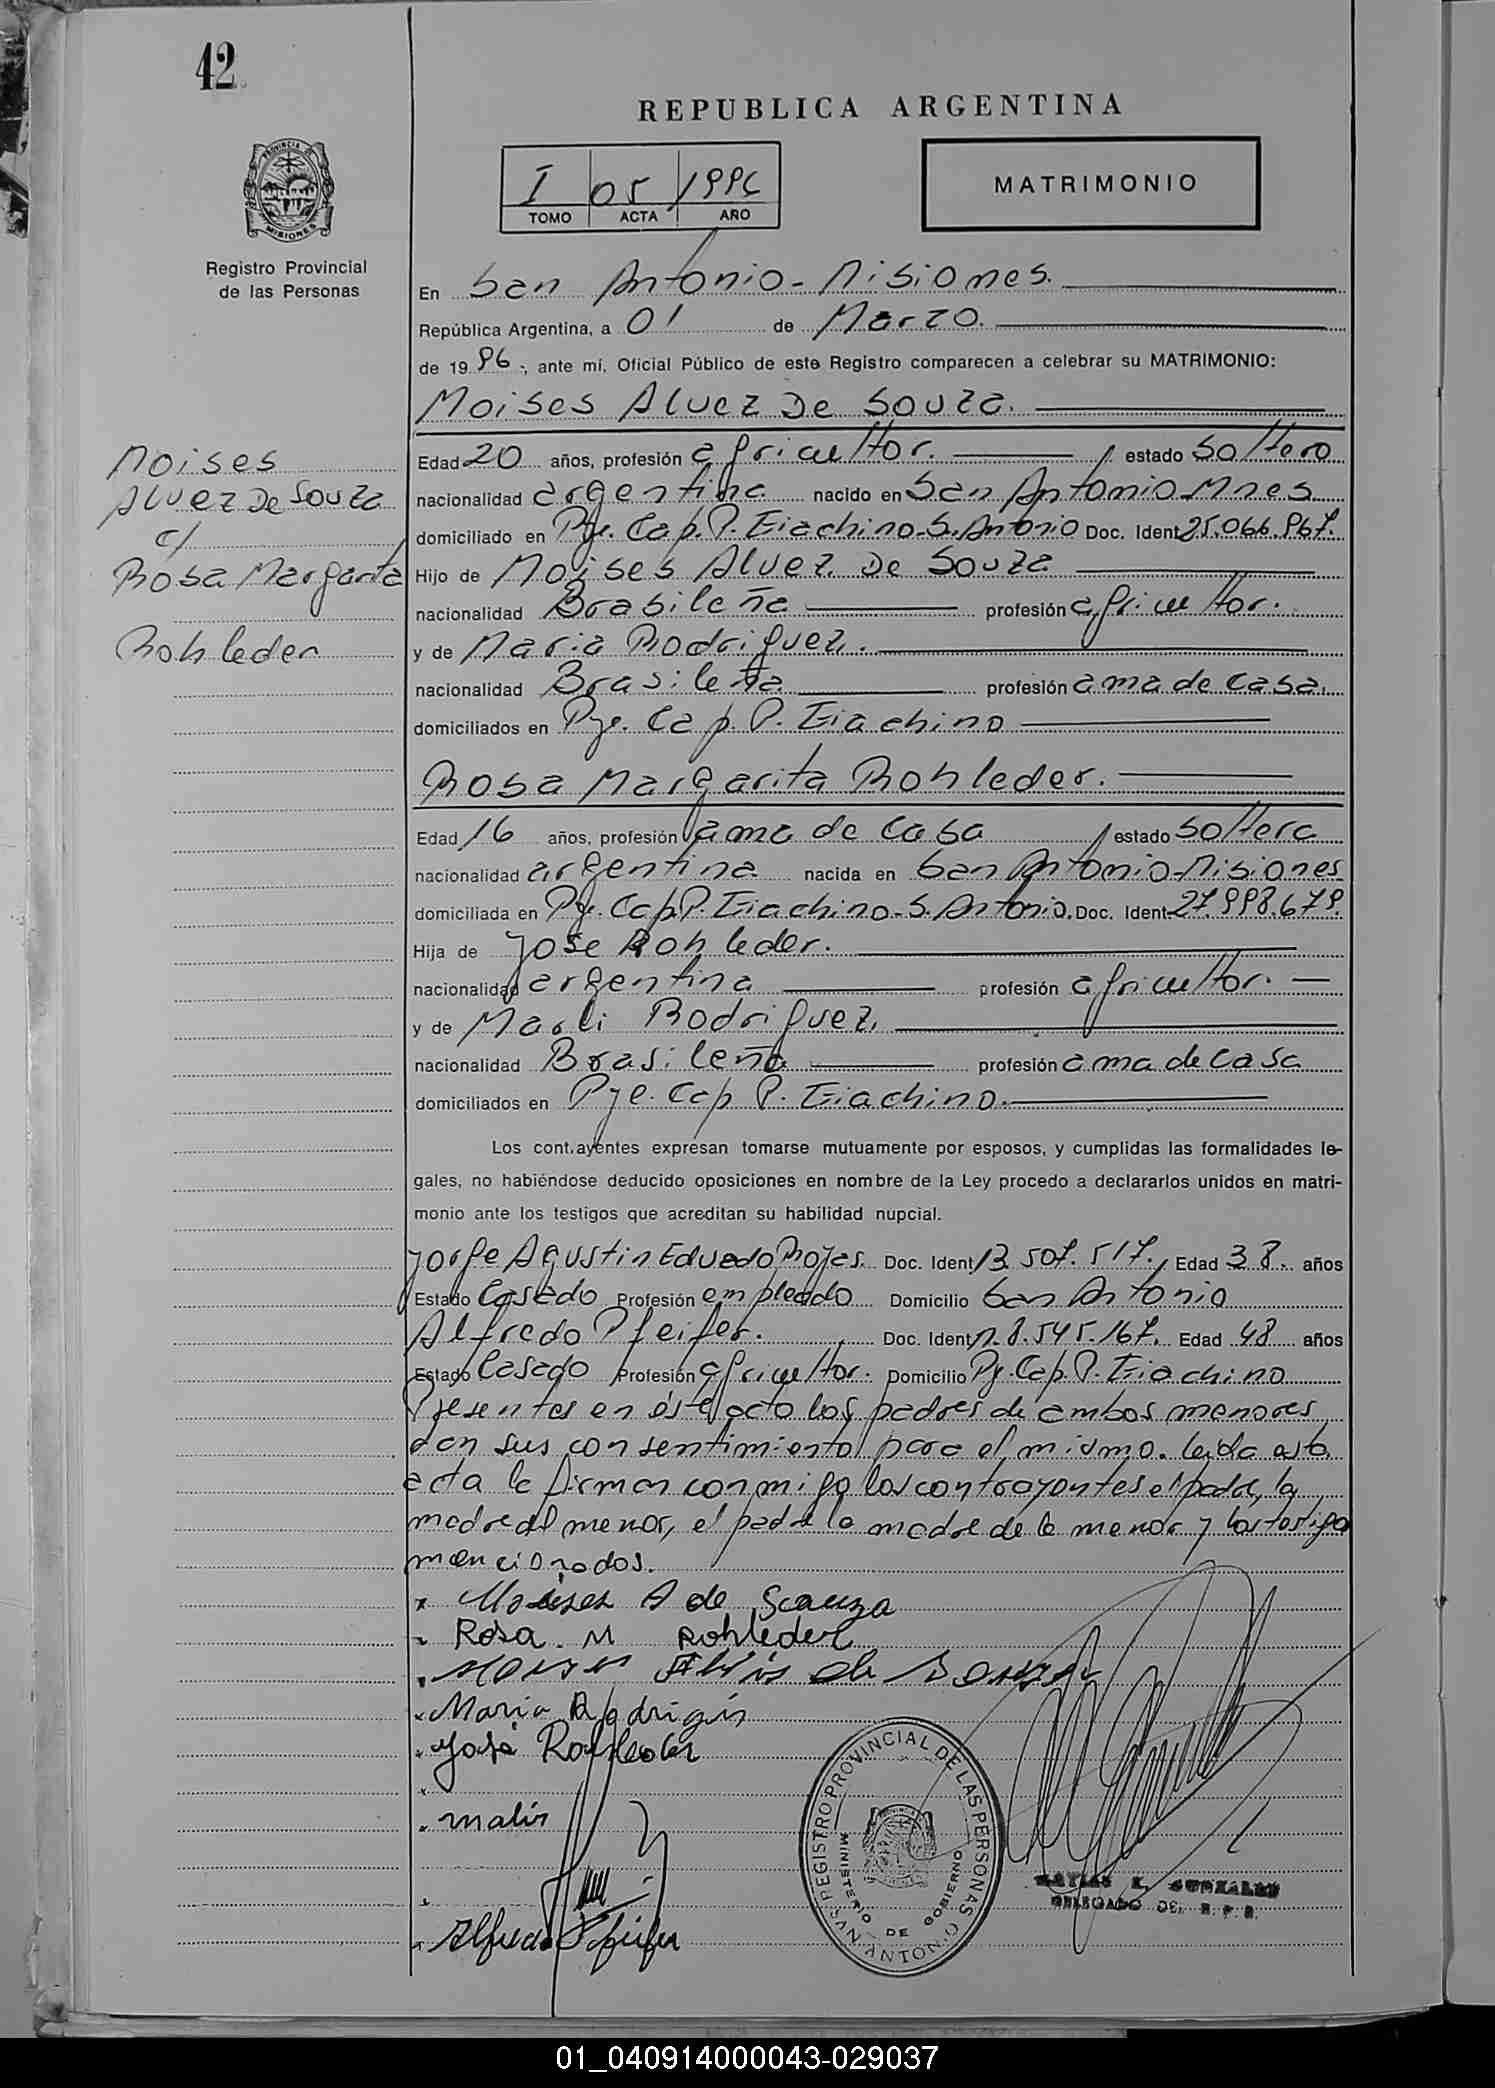 42
REPUBLICA ARGENTINA
PROVINCIA DE
MISIONES
Registro Provincial
de las Personas
I 05 1996
TOMO ACTA AÑO
MATRIMONIO
En San Antonio - Misiones.
República Argentina, a 01 de Marzo.
de 19 96, ante mí, Oficial Público de este Registro comparecen a celebrar su MATRIMONIO:
Moises Alvez De Souza.
Moises
Alvez De Souza
c/
Rosa Margarita
Rohleder
Edad 20 años, profesión agricultor. estado soltero
nacionalidad argentina nacido en San Antonio Mnes
domiciliado en Pje. Cap. P. Giachino - S. Antonio Doc. Ident 25.066.967.
Hijo de Moises Alvez De Souza
nacionalidad Brasileña profesión agricultor.
y de Maria Rodriguez.
nacionalidad Brasileña profesión ama de casa.
domiciliados en Pje. Cap. P. Giachino
Rosa Margarita Rohleder.
Edad 16 años, profesión ama de casa estado soltera
nacionalidad argentina nacida en San Antonio - Misiones
domiciliada en Pje. Cap P. Giachino - S. Antonio. Doc. Ident 27.998.679.
Hija de Jose Rohleder.
nacionalidad argentina profesión agricultor.
y de Marli Rodriguez.
nacionalidad Brasileña profesión ama de casa
domiciliados en Pje. Cap P. Giachino.
Los contrayentes expresan tomarse mutuamente por esposos, y cumplidas las formalidades le-
gales, no habiéndose deducido oposiciones en nombre de la Ley procedo a declararlos unidos en matri-
monio ante los testigos que acreditan su habilidad nupcial.
Jorge Agustin Eduardo Rojas. Doc. Ident 13.507.517. Edad 38. años
Estado Casado Profesión empleado Domicilio San Antonio
Alfredo Pfeifer. Doc. Ident 8.545.167. Edad 48 años
Estado Casado Profesión agricultor. Domicilio Pje. Cap. P. Giachino
Presentes en éste acto los padres de ambos menores
dan sus consentimiento para el mismo. leida esta
acta la firman conmigo los contrayentes el padre, la
madre del menor, el padre la madre de la menor y los testigos
mencionados.
x Moises A de Souza
Rosa. M Rohleder
de Souza
x Maria Rodrigues
x José Rohleder
x
x
x Alfredo Pfeifer
REGISTRO PROVINCIAL DE LAS PERSONAS
MINISTERIO DE GOBIERNO
GONZALEZ
DELEGADO DEL R. P. P.
01_040914000043-029037